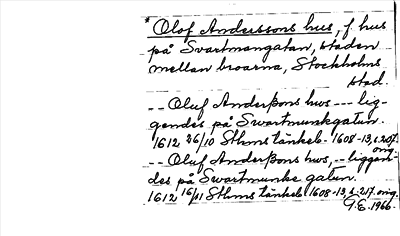 * Olof Anderssons hus, f. hus
på Svartmangatan, staden
mellan broarna, Stockholms
stad.
-- Oluf Anderßons hws --- lig-
gendes på Swartmunkgatun.
1612 26/10 Sthms tänkeb. 1608-13, s. 207.
orig.
-- Oluf Anderßons hws, -- liggen-
des på Swartmunke gatun.
1612 16/11 Sthms tänkeb. 1608-13, s. 217. orig.
G.E. 1966.